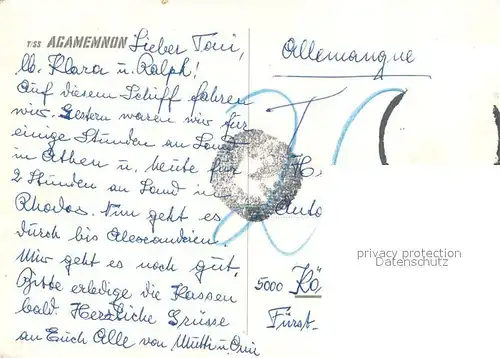 T/SS AGAMEMNON Lieber Toni,
lb. Klara u. Ralph!
Auf diesem Schiff fahren
wir. Gestern waren wir für
einige Stunden an Land
in Athen u. heute für
2 Stunden an Land in
Rhodos. Nun geht es
durch bis Alexandrien.
Mir geht es noch gut,
Bitte erledige die Kassen
bald. Herzliche Grüsse
an Euch Alle von Mutti u. Omi
Allemangne
H
Auto
privacy protection
Datenschutz
5000 Kö
Fürst-